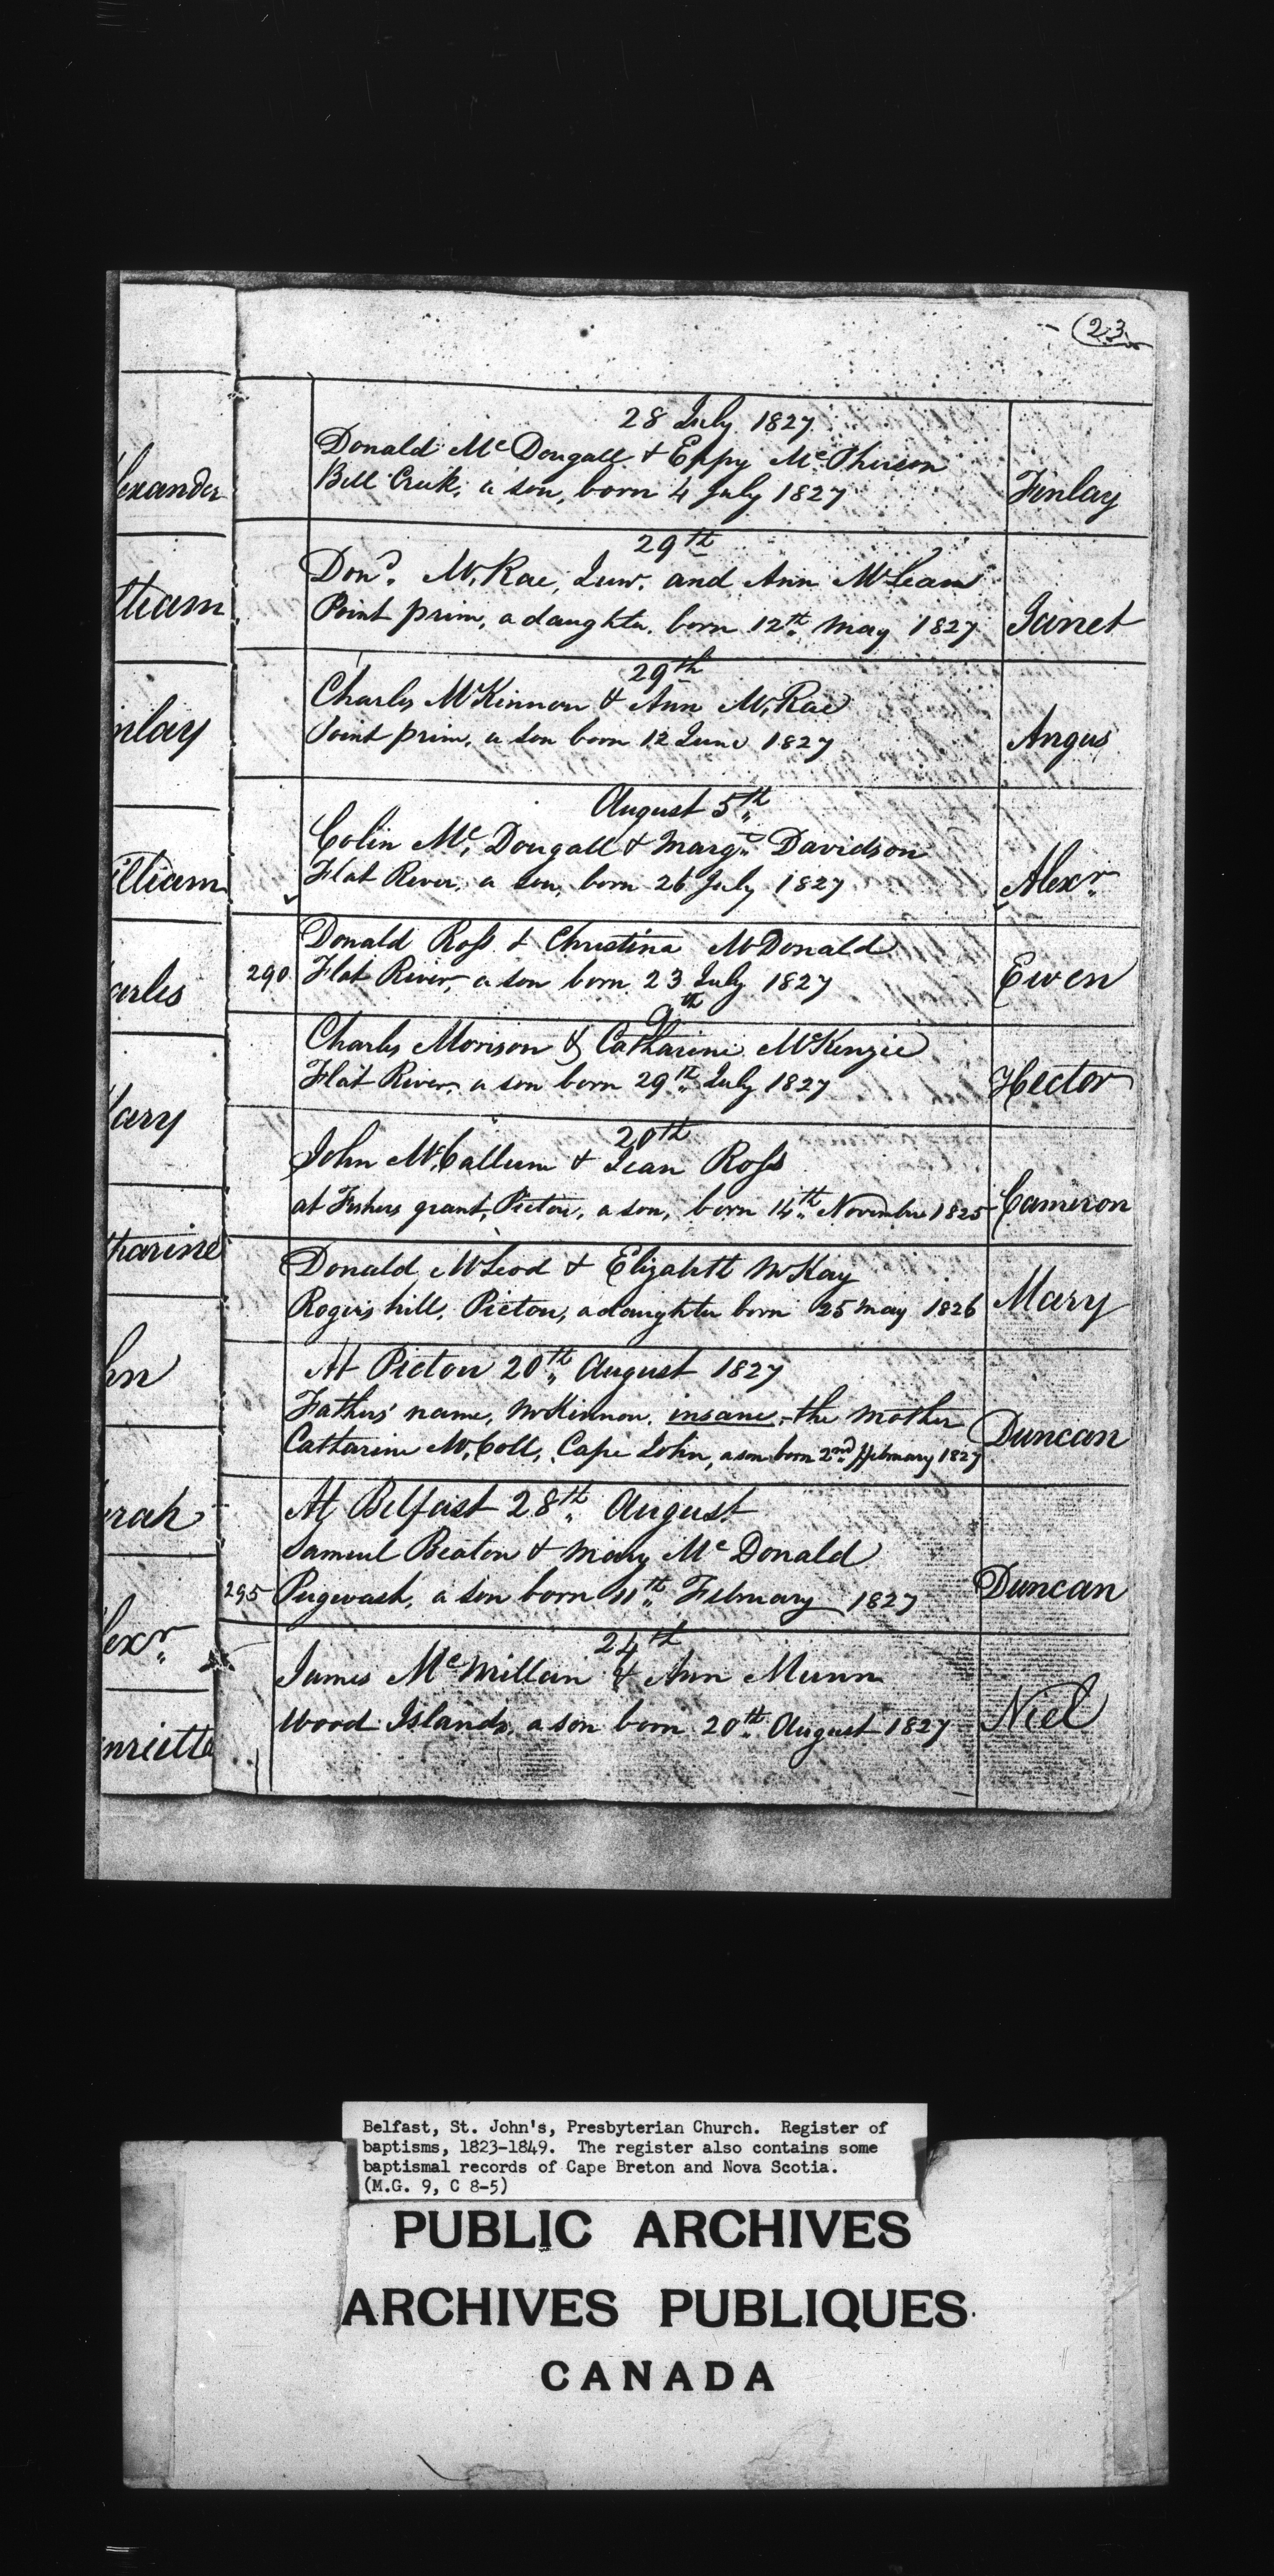 23
28 July 1827
Donald McDougall & Eppy McPherson
Bell Creek, a son, born 4 July 1827
Finlay
29th
Dond. McRae, Junr. and Ann McLean
Point prim, a daughter, born 12th May 1827
Janet
29th
Charles McKinnon & Ann McRae
Point prim, a son born 12 June 1827
Angus
August 5th
Colin McDougall & Margt. Davidson
Flat River, a son, born 26 July 1827
Alexr.
Donald Ross & Christina McDonald
290 Flat River, a son born 23 July 1827
Ewen
9th
Charles Morison & Catharine McKenzie
Flat River a son born 29th July 1827
Hector
20th
John McCallum & Jean Ross
at Fishers grant, Pictou, a son, born 14th November 1825
Cameron
Donald McLeod & Elizabeth McKay
Rogers hill, Pictou, a daughter born 25 May 1826
Mary
At Pictou 20th August 1827
Fathers name, McKinnon, insane, the mother
Catharine McColl, Cape John, a son born 2nd February 1827
Duncan
At Belfast 28th August
Samuel Beaton & Mary McDonald
295 Pugwash, a son born 11th February 1827
Duncan
24th
James McMillan & Ann Munn
Wood Islands, a son born 20th August 1827
Niel
lexander
lliam
nlay
illiam
arles
ary
tharine
hn
arah
lexr.
nriette
Belfast, St. John's, Presbyterian Church. Register of
baptisms, 1823-1849. The register also contains some
baptismal records of Cape Breton and Nova Scotia.
(M.G. 9, C 8-5)
PUBLIC ARCHIVES
ARCHIVES PUBLIQUES
CANADA